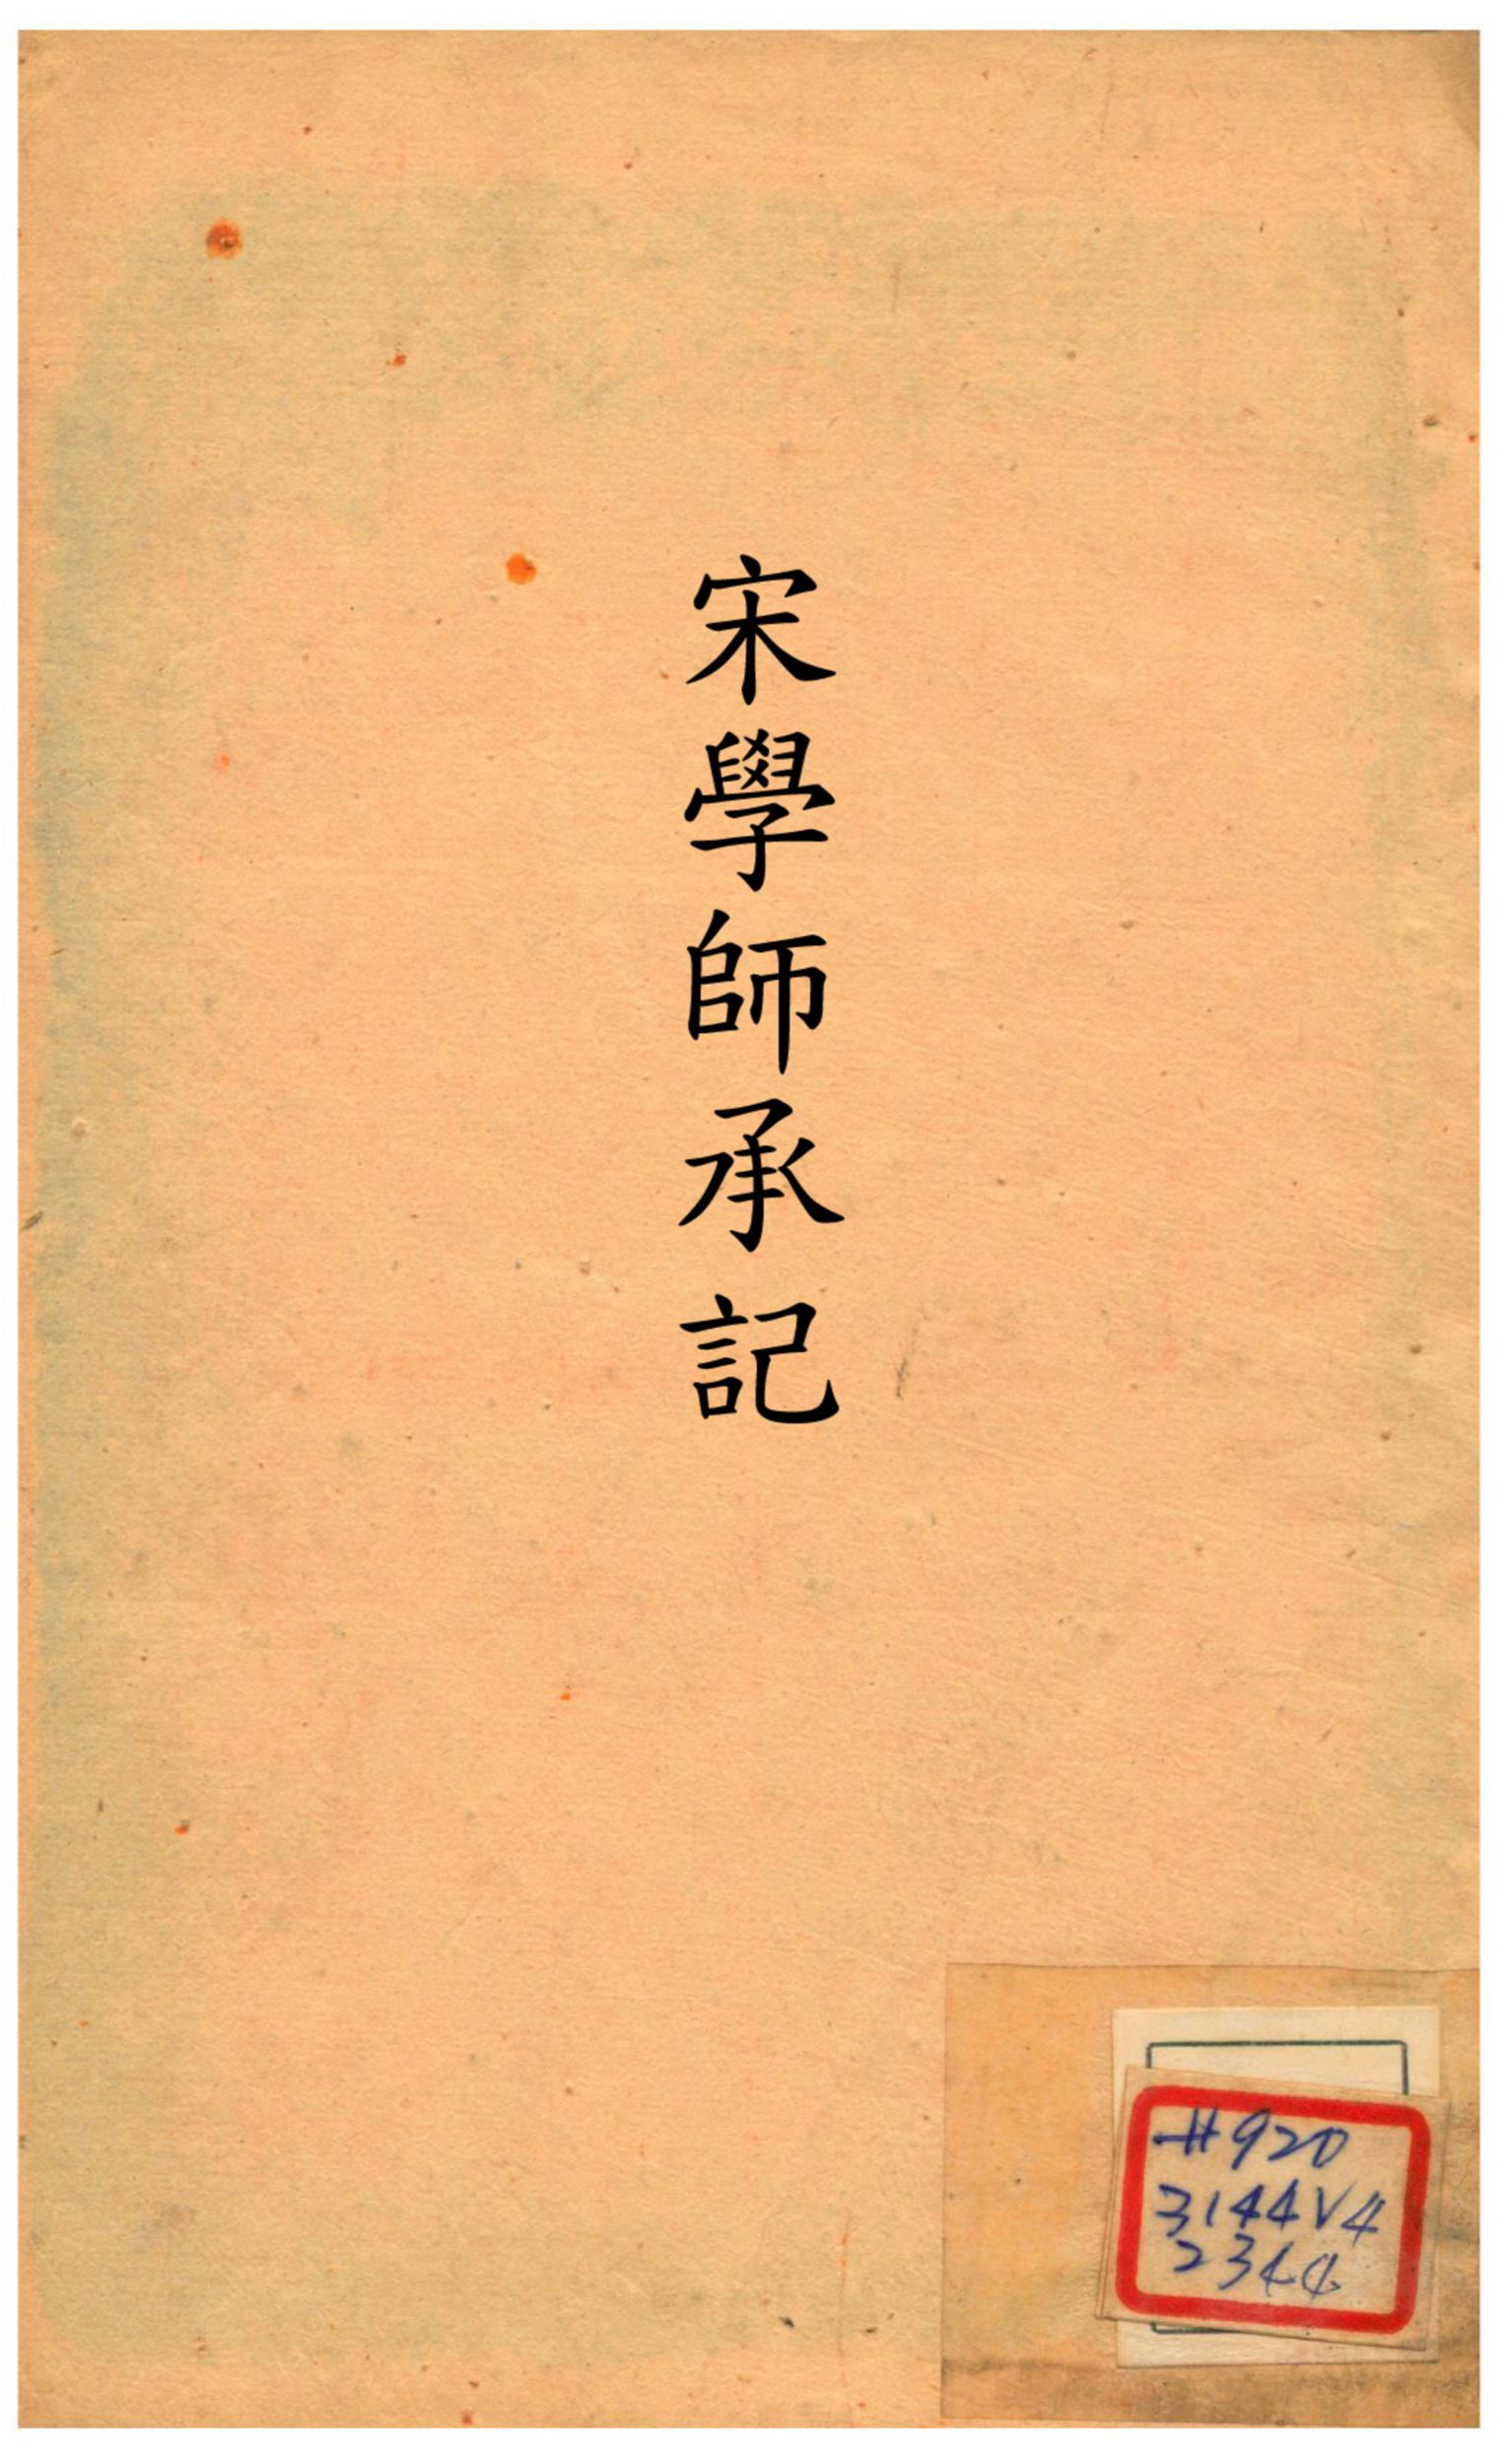 宋學師承記
920
3144V4